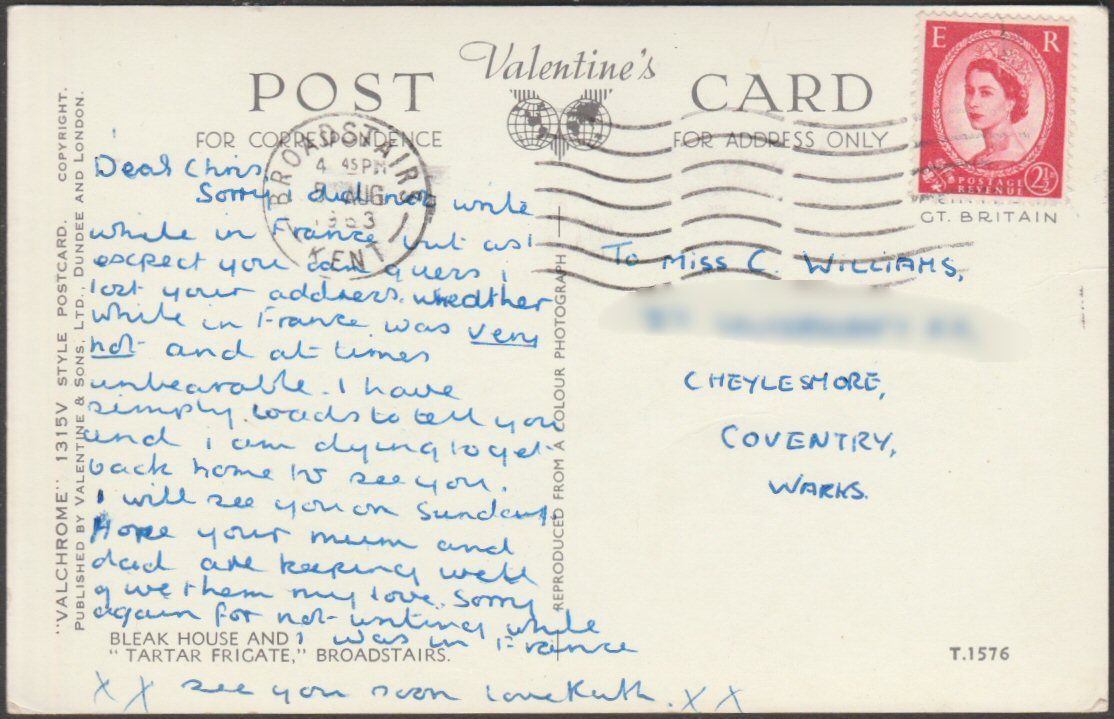 Valentine's
POST CARD
FOR CORRESPONDENCE
FOR ADDRESS ONLY
E R
POSTAGE
REVENUE
2½
GT. BRITAIN
BROADSTAIRS
4 45 PM
5 AUG
1963
KENT
Dear Chris,
Sorry I did not write
while in France but as I
expect you can guess I
lost your address. Weather
while in France was very
hot and at times
unbearable. I have
simply loads to tell you
and I am dying to get
back home to see you.
I will see you on Sunday.
Hope your mum and
dad are keeping well
give them my love. Sorry
again for not writing while
I was in France
XX see you soon love Keith. XX
To MISS C. WILLIAMS,
CHEYLESMORE,
COVENTRY,
WARKS.
"VALCHROME" 1315V STYLE POSTCARD. COPYRIGHT.
PUBLISHED BY VALENTINE & SONS, LTD., DUNDEE AND LONDON.
REPRODUCED FROM A COLOUR PHOTOGRAPH
BLEAK HOUSE AND
"TARTAR FRIGATE," BROADSTAIRS.
T.1576